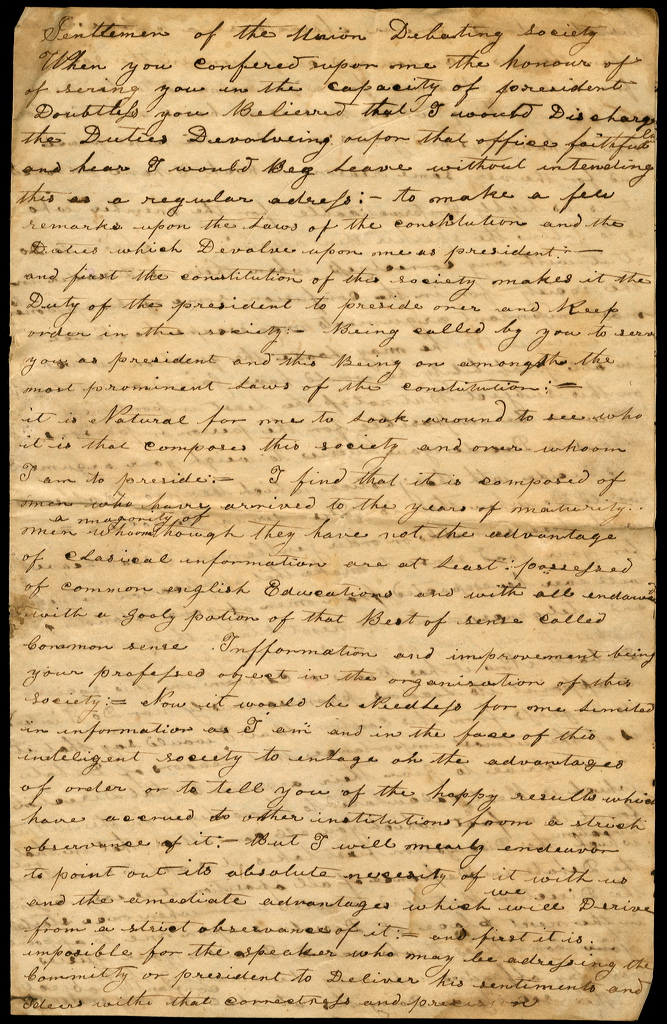 Gentlemen of the Union Debating Society
When you confered upon me the honour of
of sering you in the capacity of president
Doubtless you Believed that I would Discharge
the Duties Devolveing oupon that office faithfully
and hear I would Beg Leave without intending
this as a regular adress:- to make a few
remarks upon the Laws of the constitution and the
Duties which Devolve upon me as president:-
and first the constitution of this society makes it the
Duty of the president to preside over and Keep
order in the society:- Being called by you to serve
you as president and this Being on amongsth the
most prominent Laws of the constitution:=
it is Natural for me to Look around to see who
it is that composes this society and over whoom
I am to preside:- I find that it is composed of
men who have arrived to the years of maturity..
a majority of
men whoom though they have not the advantage
of clasical information are at Least: possessed
of common english Educations and with all endawed
with a gooly potion of that Best of sense called
Common sense. Infformation and improvement being
your professed object in the organisation of this
society:= Now it would be Needless for me Limited
in information as I am and in the face of this
inteligent society to enlage on the advantages
of order or to tell you of the happy results which
have accrued to other institutions from a strick
observance of it:- But I will mearly endeavor
to point out its absolute necesity of it with us
we
and the amediate advantages which will Derive
from a strict observance of it:= and first it is.
imposible for the speaker who may be adressing the
Committy or president to Deliver his sentiments and
Ideirs withe that correctness and precision